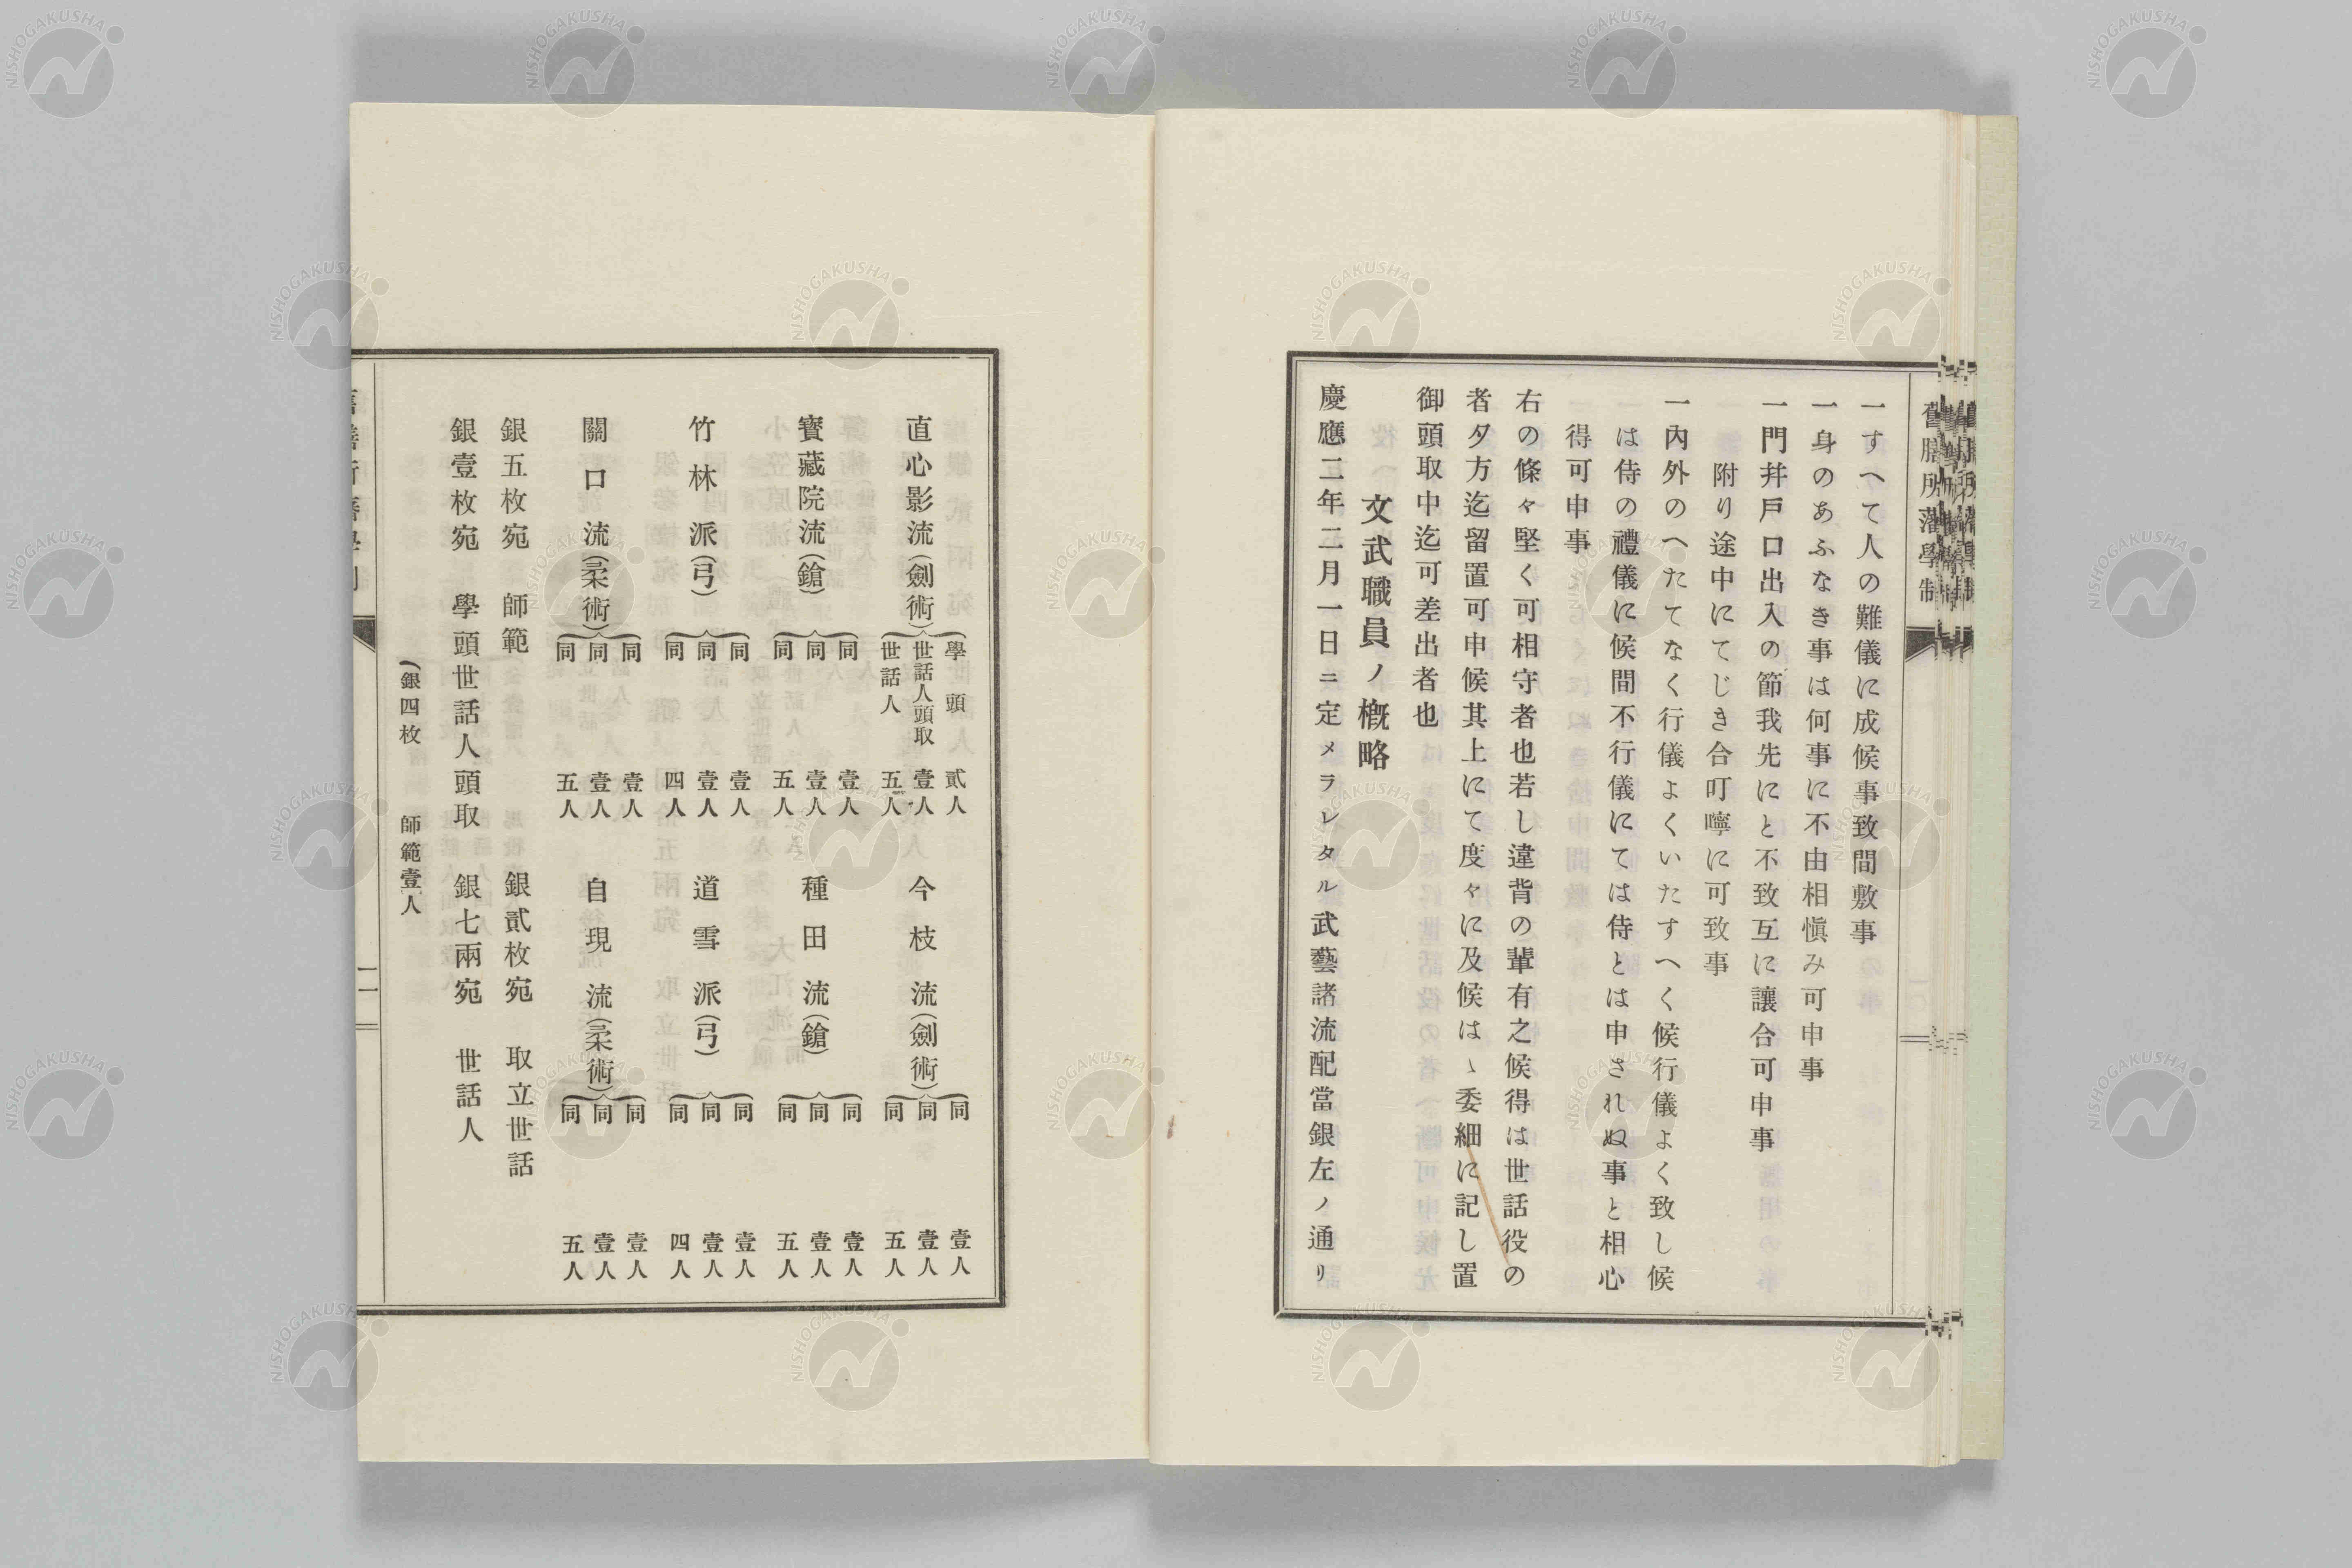 舊膳所藩學制
一すへて人の難儀に成候事致間敷事
一身のあふなき事は何事に不由相愼み可申事
一門幷戶口出入の節我先にと不致互に讓合可申事
附り途中にてじき合叮嚀に可致事
一內外のへたてなく行儀よくいたすへく候行儀よく致し候
は侍の禮儀に候間不行儀にては侍とは申されぬ事と相心
得可申事
右の條々堅く可相守者也若し違背の輩有之候得は世話役の
者夕方迄留置可申候其上にて度々に及候はゝ委細に記し置
御頭取中迄可差出者也
文武職員ノ槪略
慶應二年二月一日ニ定メラレタル武藝諸流配當銀左ノ通リ
直心影流(劍術) 學頭 貳人 世話人頭取 壹人 世話人 五人
今枝流(劍術) 同 壹人 同 壹人 同 五人
寳藏院流(鎗) 同 壹人 同 壹人 同 五人
種田流(鎗) 同 壹人 同 壹人 同 五人
竹林派(弓) 同 壹人 同 壹人 同 四人
道雪派(弓) 同 壹人 同 壹人 同 四人
關口流(柔術) 同 壹人 同 壹人 同 五人
自現流(柔術) 同 壹人 同 壹人 同 五人
銀五枚宛 師範 銀貳枚宛 取立世話
銀壹枚宛 學頭世話人頭取 銀七兩宛 世話人
(銀四枚 師範壹人
二
NISHOGAKUSHA